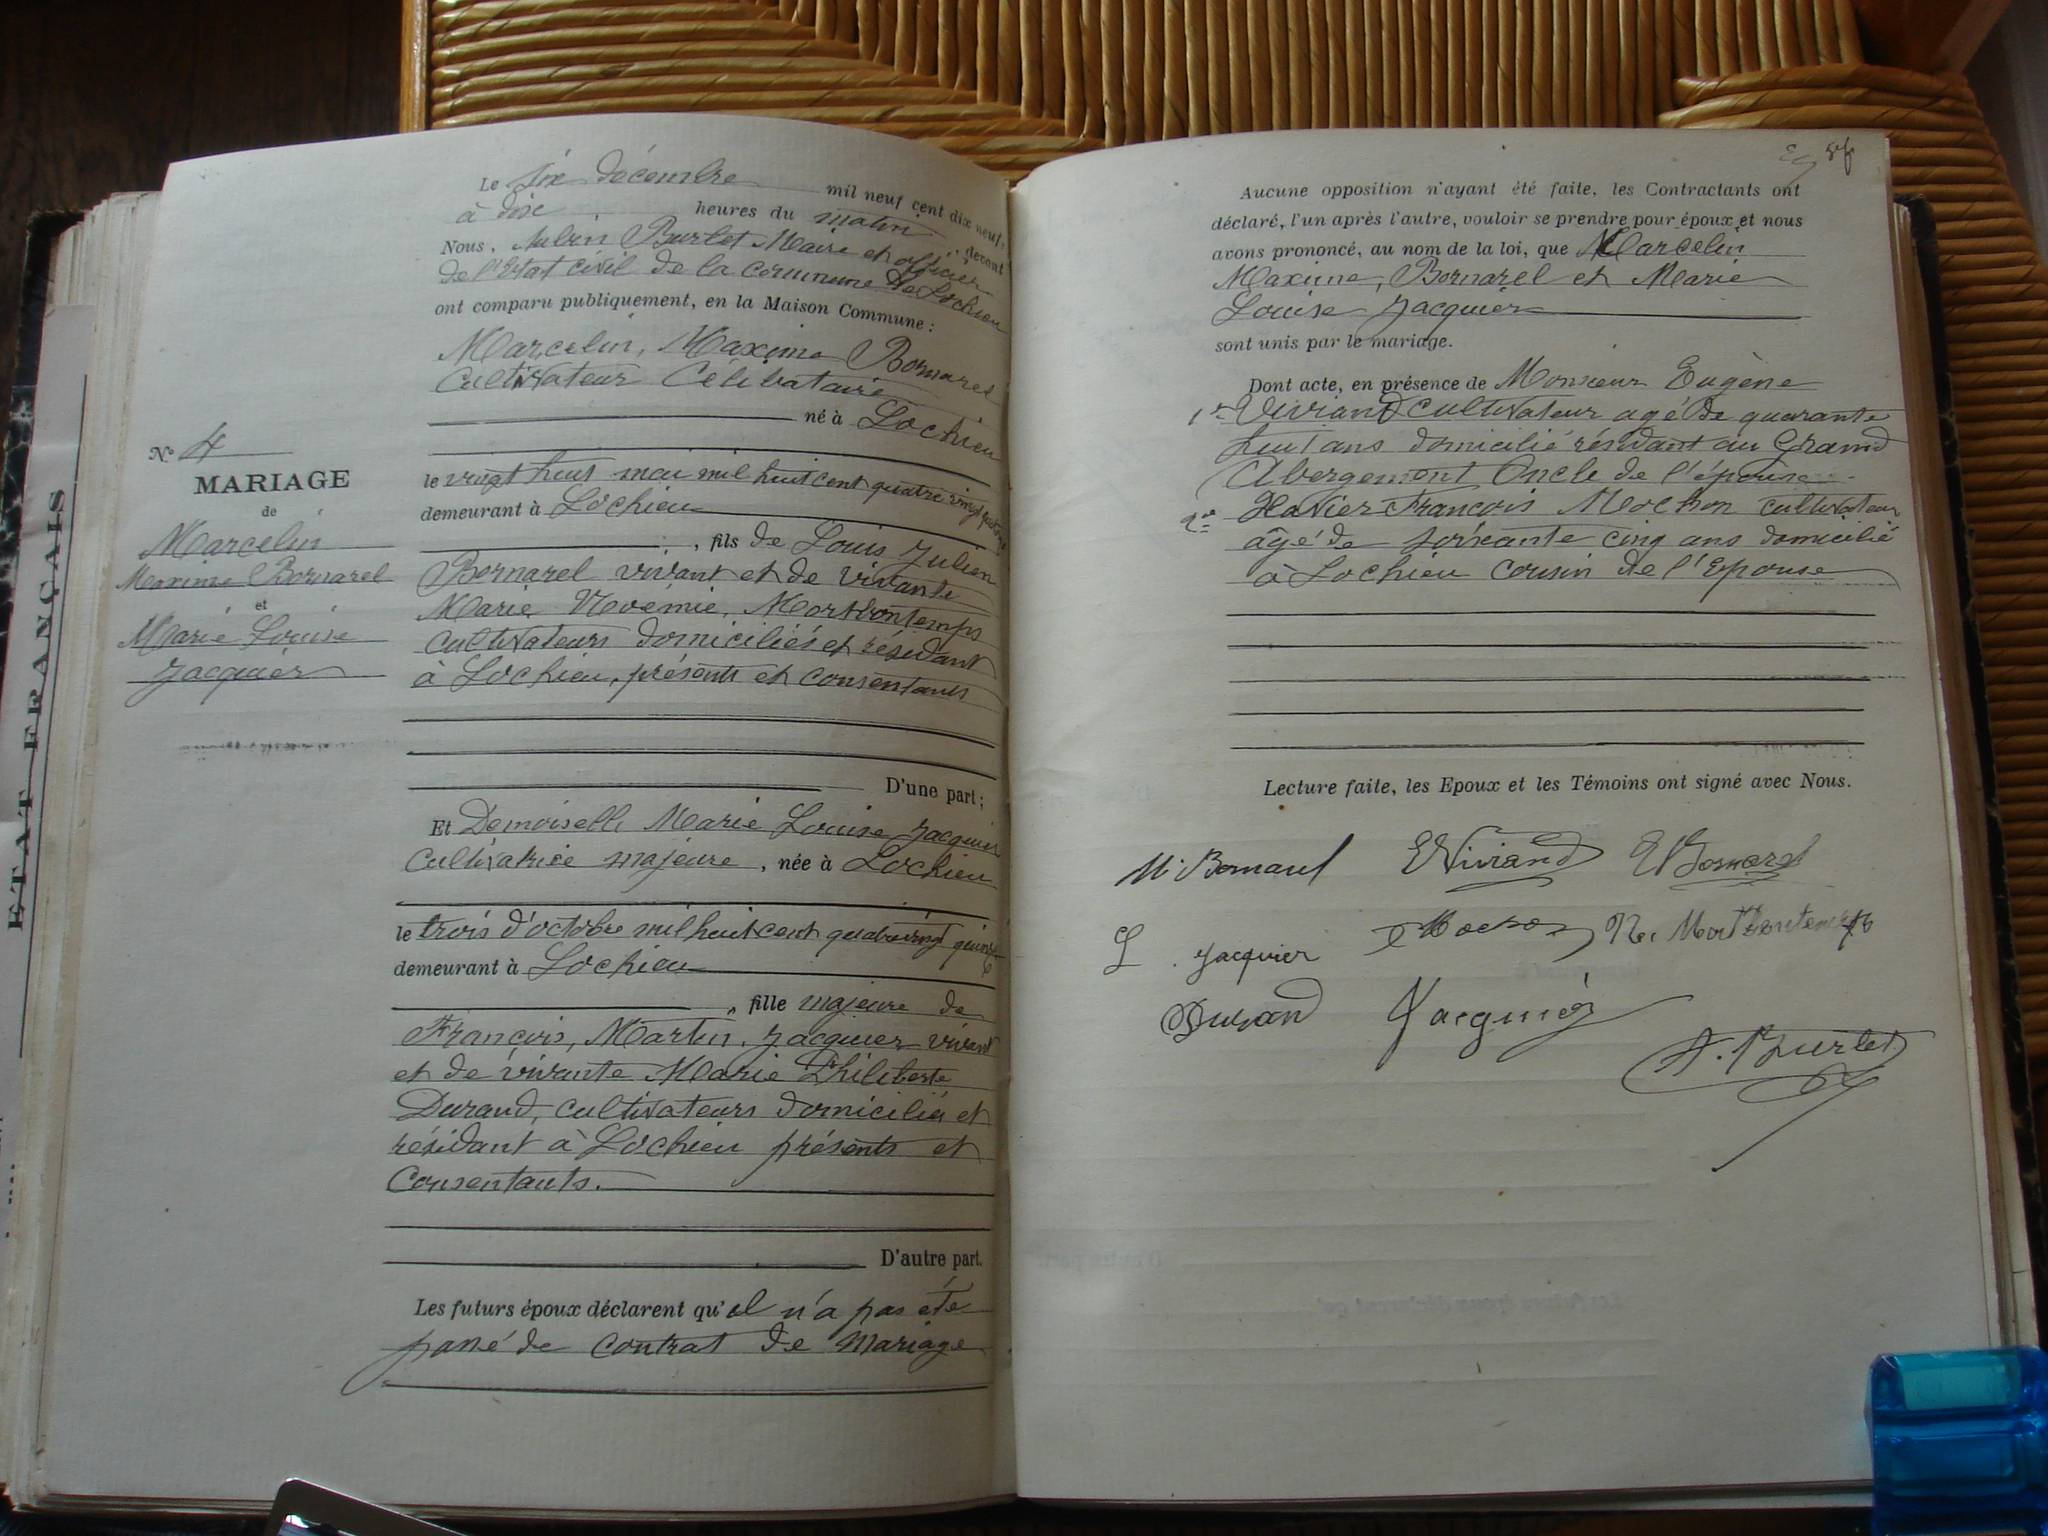 ETAT FRANÇAIS
Nº 4
MARIAGE
de
Marcelin
Maxime Bornarel
et
Marie Louise
Jacquier
Le six décembre mil neuf cent dix neuf,
à dix heures du matin, devant
Nous, Aubin Burlet Maire et officier
de l'Etat civil de la commune de Lochieu
ont comparu publiquement, en la Maison Commune :
Marcelin, Maxime Bornarel
Cultivateur Célibataire
né à Lochieu
le vingt huit mai mil huit cent quatre vingt quatorze
demeurant à Lochieu
, fils de Louis Julien
Bornarel vivant et de vivante
Marie Noémie, Montbontemps
cultivateurs domiciliés et résidant
à Lochieu, présents et consentants
D'une part ;
Et Demoiselle Marie Louise Jacquier
Cultivatrice majeure, née à Lochieu
le trois d'octobre mil huit cent quatre vingt quinze
demeurant à Lochieu
, fille majeure de
François, Martin, Jacquier vivant
et de vivante Marie Philiberte
Durand, cultivateurs domiciliés et
résidant à Lochieu présents et
Consentants.
D'autre part.
Les futurs époux déclarent qu'il n'a pas été
passé de contrat de mariage
Aucune opposition n'ayant été faite, les Contractants ont
déclaré, l'un après l'autre, vouloir se prendre pour époux et nous
avons prononcé, au nom de la loi, que Marcelin
Maxime, Bornarel et Marie
Louise Jacquier
sont unis par le mariage.
Dont acte, en présence de Monsieur Eugène
1er Viviand cultivateur agé de quarante
huit ans domicilié résidant au Grand
Abergement Oncle de l'épouse
2me Xavier François Mochon cultivateur
âgé de soixante cinq ans domicilié
à Lochieu cousin de l'Epouse
Lecture faite, les Epoux et les Témoins ont signé avec Nous.
M. Bornarel E Viviand Bornarel
L. Jacquier Mochon
Durand Jacquier
A. Burlet